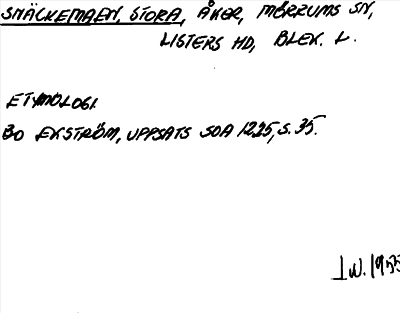 SNÄCKEMAEN, STORA, ÅKER, MÖRRUMS SN,
LISTERS HD, BLEK. L.
ETYMOLOGI
BO EKSTRÖM, UPPSATS SOA 1225, S. 35.
I.W. 1955